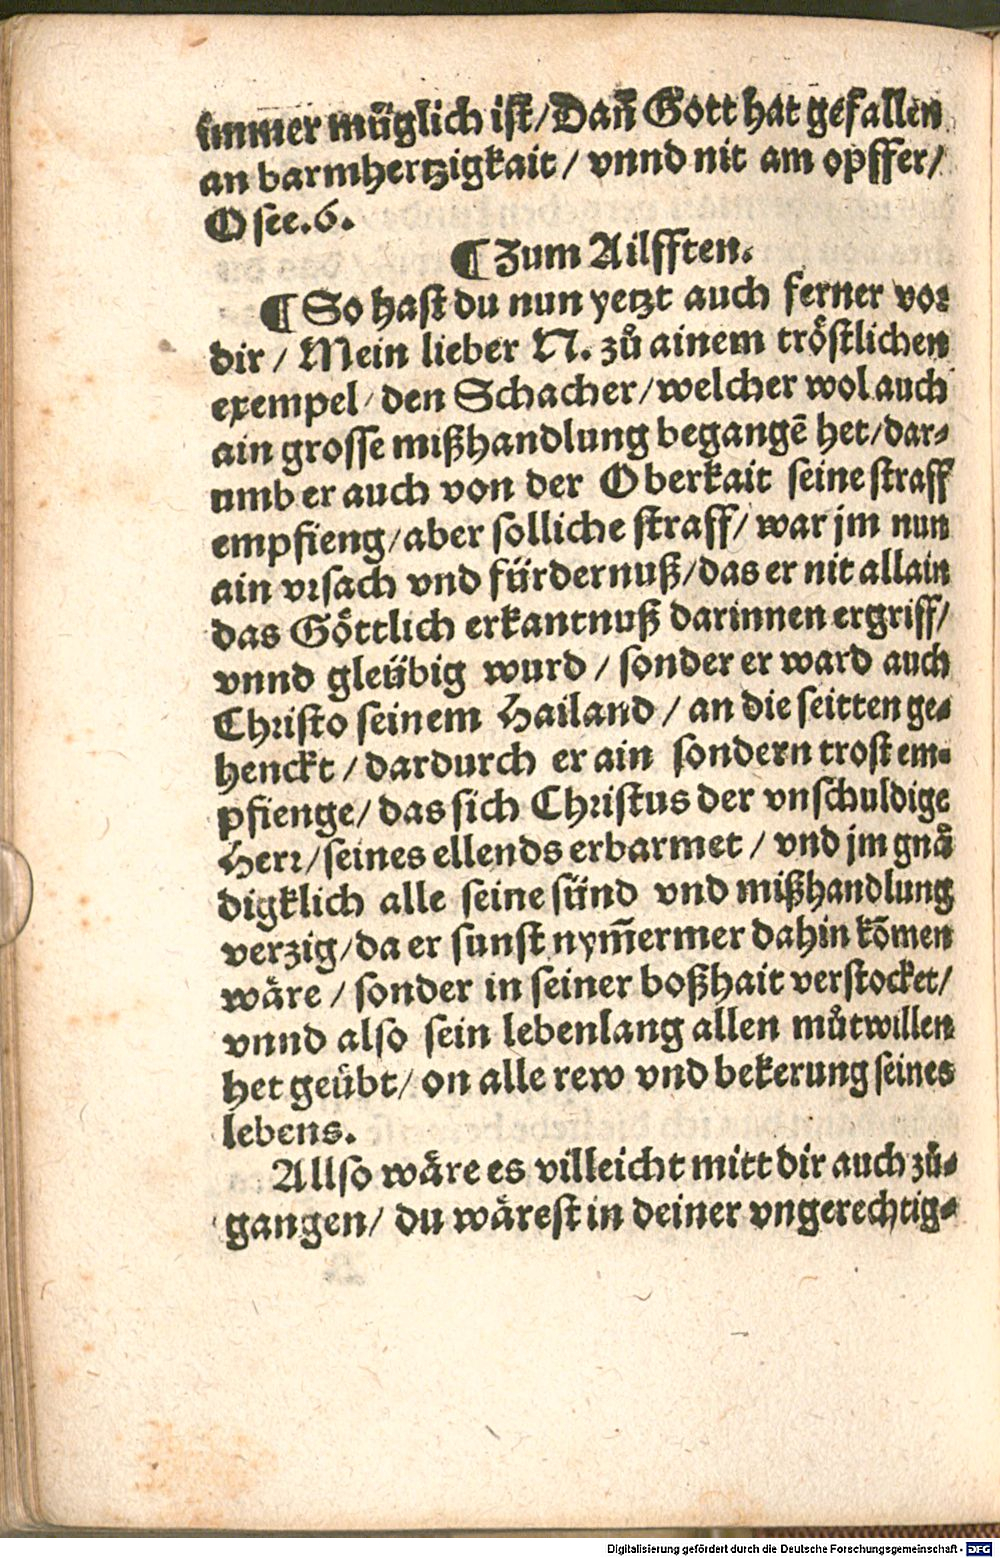 immer müglich ist/Dañ Gott hat gefallen
an barmhertzigkait/ vnnd nit am opffer/
Osee.6.
¶ Zum Ailfften.
¶ So hast du nun yetzt auch ferner vor
dir/ Mein lieber N. zů ainem tröstlichen
exempel/ den Schacher/welcher wol auch
ain grosse mißhandlung begangē het/dar⸗
umb er auch von der Oberkait seine straff
empfieng/aber solliche straff/ war jm nun
ain vrsach vnd fürdernuß/das er nit allain
das Göttlich erkantnuß darinnen ergriff/
vnnd gleübig wurd/ sonder er ward auch
Christo seinem Hailand/ an die seitten ge⸗
henckt/ dardurch er ain sondern trost em⸗
pfienge/ das sich Christus der vnschuldige
Herr/seines ellends erbarmet/ vnd jm gnå
digklich alle seine sünd vnd mißhandlung
verzig/da er sunst nym̃ermer dahin kōmen
wåre/ sonder in seiner boßhait verstocket/
vnnd also sein lebenlang allen můtwillen
het geübt/ on alle rew vnd bekerung seines
lebens.
Allso wåre es villeicht mitt dir auch zů⸗
gangen/ du wårest in deiner vngerechtig⸗
Digitalisierung gefördert durch die Deutsche Forschungsgemeinschaft - DFG